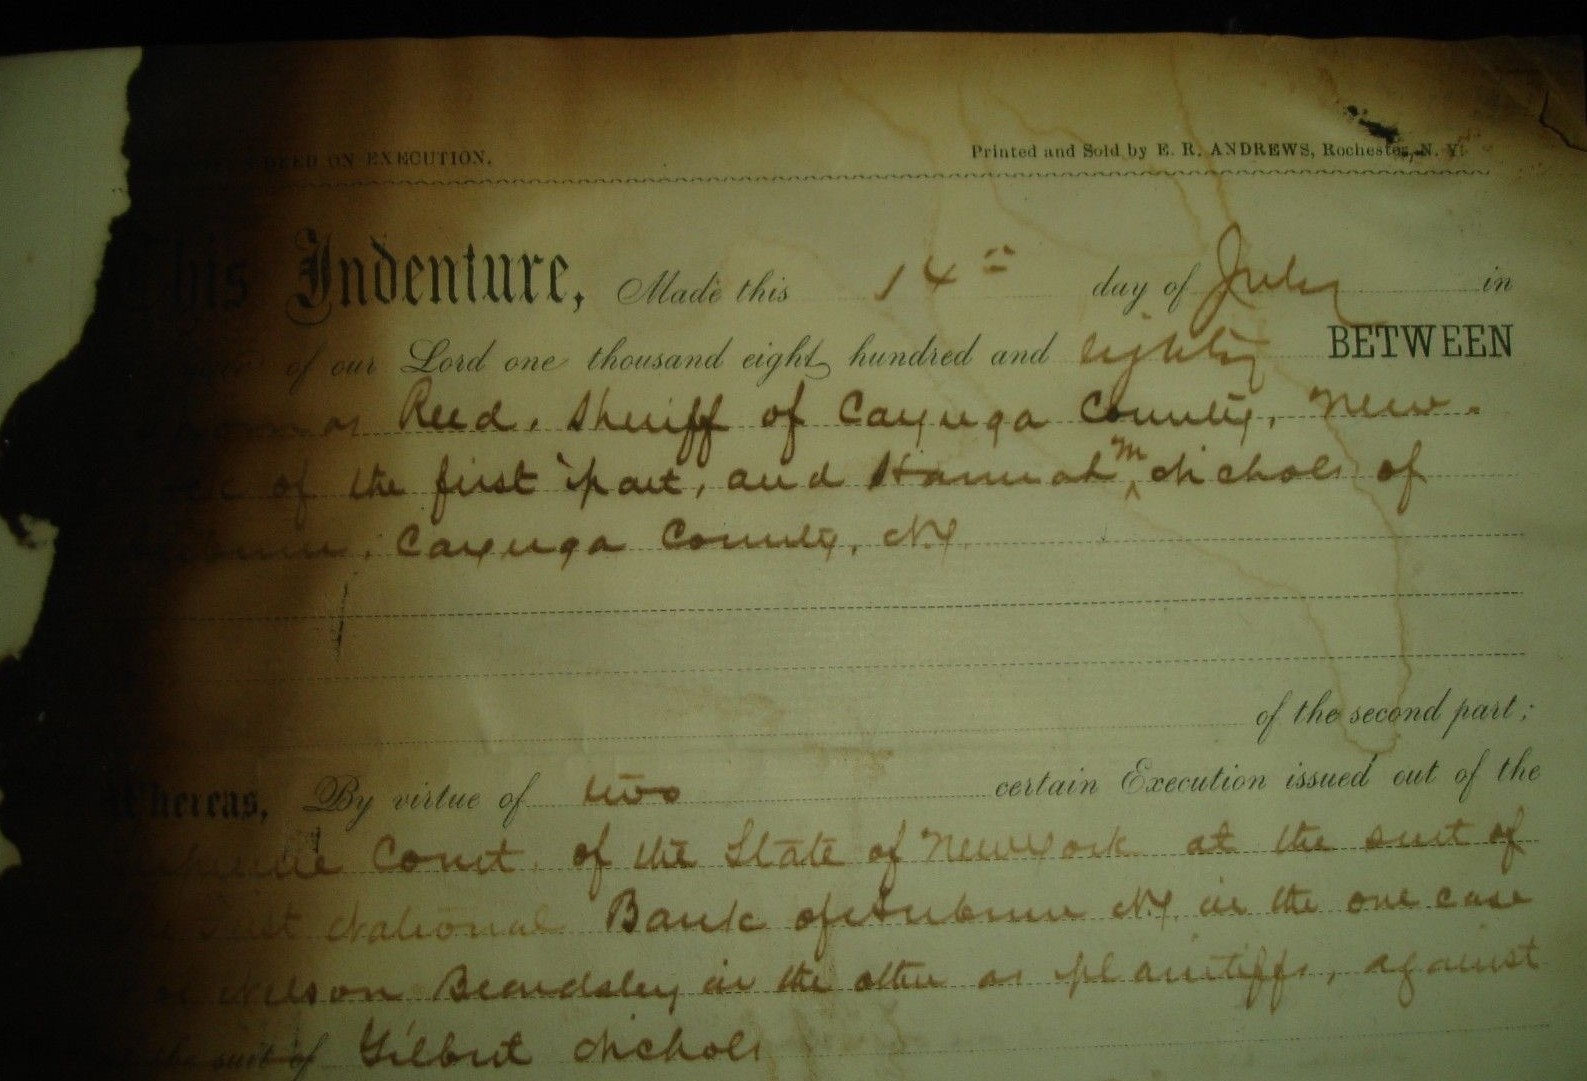 DEED ON EXECUTION.
Printed and Sold by E. R. ANDREWS, Rochester, N. Y.
This Indenture, Made this 14" day of July in
of our Lord one thousand eight hundred and eighty BETWEEN
Reed, Sheriff of Cayuga County, New-
of the first part, and Hannah M Nichols of
Cayuga County, N.Y.
of the second part;
Whereas, By virtue of two certain Execution issued out of the
Court of the State of New York at the suit of
National Bank of Auburn N.Y. in the one case
Nelson Beardsley in the other as plaintiffs, against
the suit of Gilbert Nichols